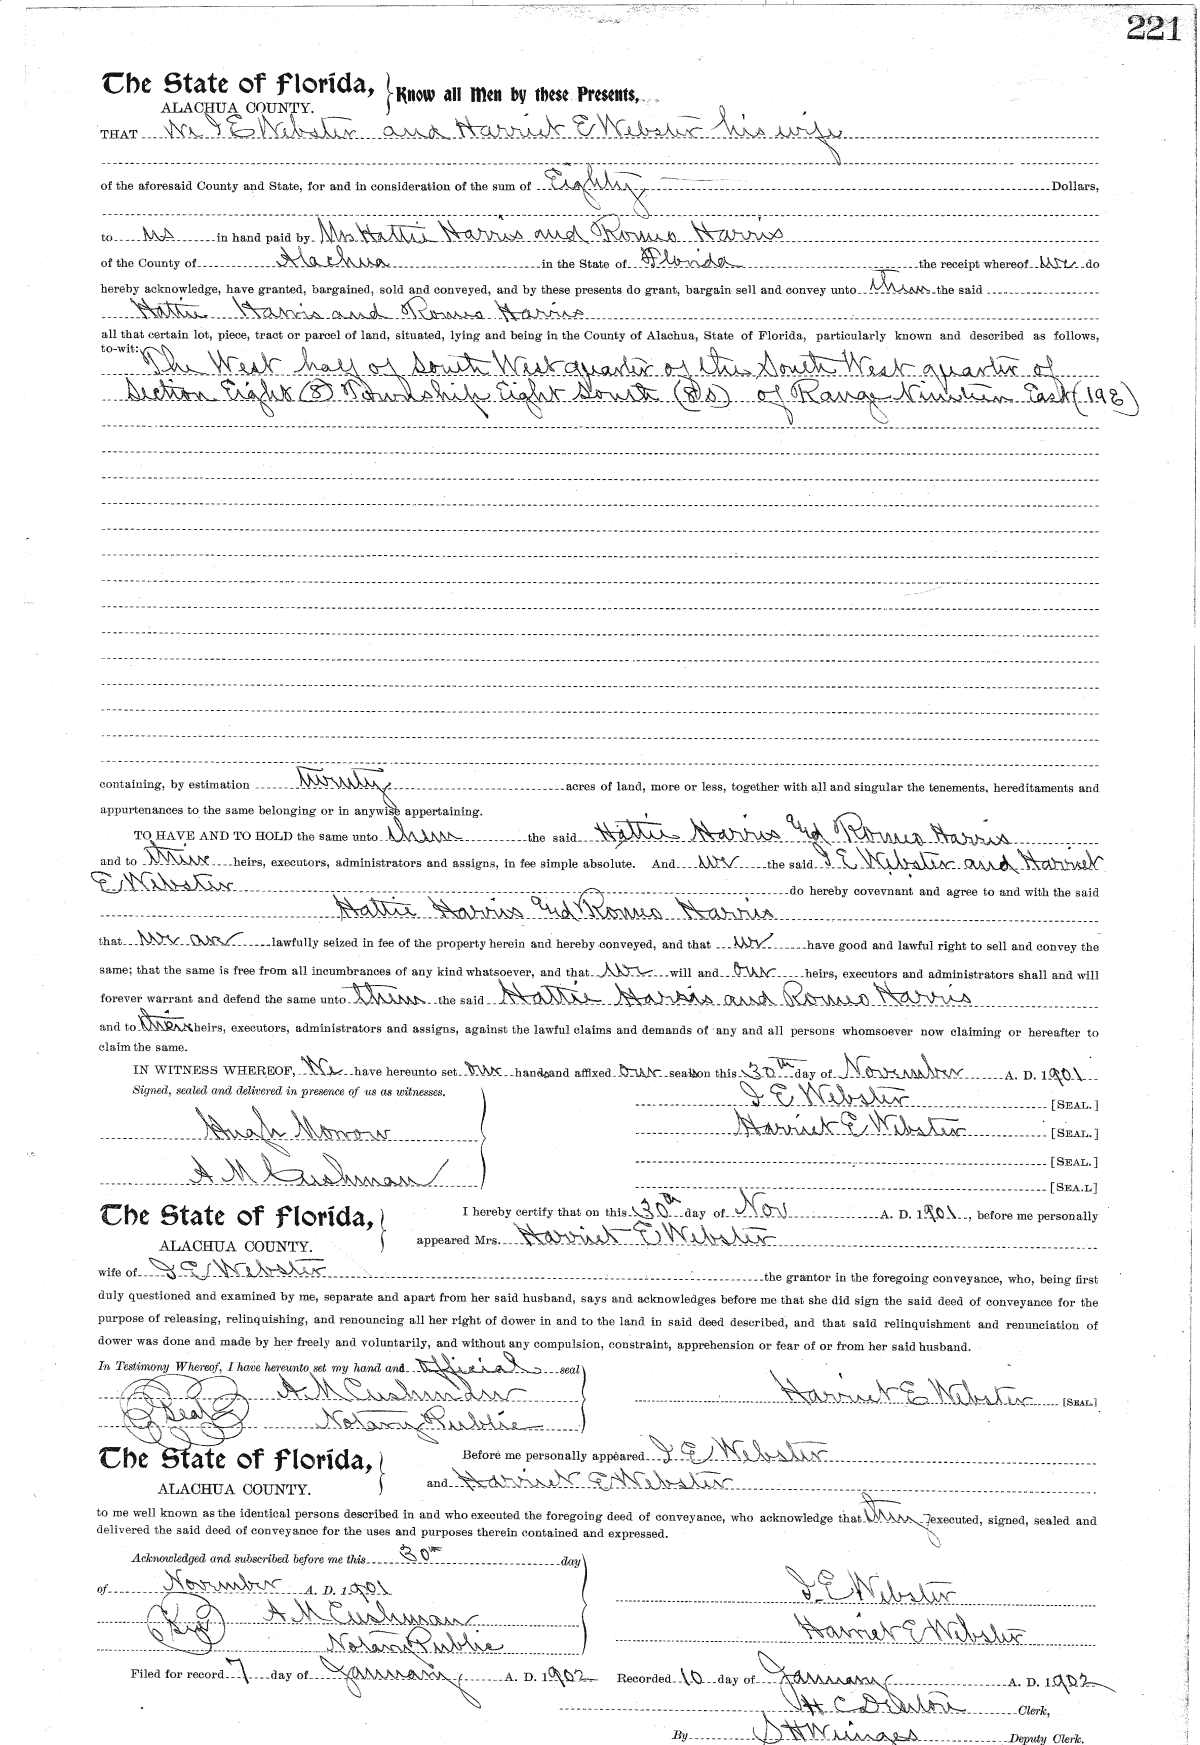 221
The State of Florida, } Know all Men by these Presents,
ALACHUA COUNTY.
THAT We I E Webster and Harriet E Webster his wife
of the aforesaid County and State, for and in consideration of the sum of Eighty Dollars,
to us in hand paid by Mrs Hattie Harris and Romeo Harris
of the County of Alachua in the State of Florida the receipt whereof we do
hereby acknowledge, have granted, bargained, sold and conveyed, and by these presents do grant, bargain sell and convey unto them the said
Hattie Harris and Romeo Harris
all that certain lot, piece, tract or parcel of land, situated, lying and being in the County of Alachua, State of Florida, particularly known and described as follows,
to-wit: The West half of South West quarter of the South West quarter of
Section Eight (8) Township Eight South (8S) of Range Nineteen East (19E)
containing, by estimation twenty acres of land, more or less, together with all and singular the tenements, hereditaments and
appurtenances to the same belonging or in anywise appertaining.
TO HAVE AND TO HOLD the same unto them the said Hattie Harris and Romeo Harris
and to their heirs, executors, administrators and assigns, in fee simple absolute. And we the said I E Webster and Harriet
E Webster do hereby covevnant and agree to and with the said
Hattie Harris and Romeo Harris
that we are lawfully seized in fee of the property herein and hereby conveyed, and that we have good and lawful right to sell and convey the
same; that the same is free from all incumbrances of any kind whatsoever, and that we will and our heirs, executors and administrators shall and will
forever warrant and defend the same unto them the said Hattie Harris and Romeo Harris
and to their heirs, executors, administrators and assigns, against the lawful claims and demands of any and all persons whomsoever now claiming or hereafter to
claim the same.
IN WITNESS WHEREOF, We have hereunto set our hands and affixed our seals on this 30th day of November A. D. 1901
Signed, sealed and delivered in presence of us as witnesses.
I E Webster [SEAL.]
Hugh Morrow
Harriet E Webster [SEAL.]
[SEAL.]
A M Cushman
[SEA.L]
The State of Florida, } I hereby certify that on this 30th day of Nov A. D. 1901, before me personally
ALACHUA COUNTY. appeared Mrs. Harriet E Webster
wife of I E Webster the grantor in the foregoing conveyance, who, being first
duly questioned and examined by me, separate and apart from her said husband, says and acknowledges before me that she did sign the said deed of conveyance for the
purpose of releasing, relinquishing, and renouncing all her right of dower in and to the land in said deed described, and that said relinquishment and renunciation of
dower was done and made by her freely and voluntarily, and without any compulsion, constraint, apprehension or fear of or from her said husband.
In Testimony Whereof, I have hereunto set my hand and official seal
A M Cushman Harriet E Webster [SEAL.]
Seal Notary Public
The State of Florida, } Before me personally appeared I E Webster
ALACHUA COUNTY. and Harriet E Webster
to me well known as the identical persons described in and who executed the foregoing deed of conveyance, who acknowledge that they executed, signed, sealed and
delivered the said deed of conveyance for the uses and purposes therein contained and expressed.
Acknowledged and subscribed before me this 30th day
of November A. D. 1901 I E Webster
A M Cushman
Harriet E Webster
Notary Public
Filed for record 7 day of January A. D. 1902 Recorded 10 day of January A. D. 1902
H C Denton Clerk,
By S H Wienges Deputy Clerk.